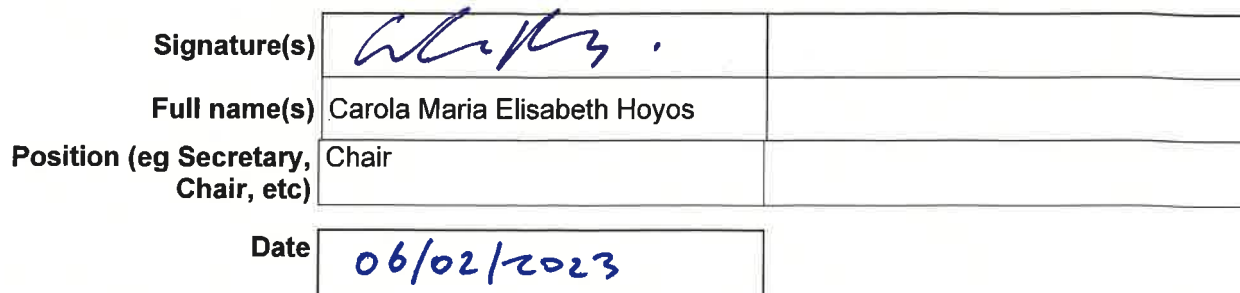 Signature(s)
Full name(s) Carola Maria Elisabeth Hoyos
Position (eg Secretary, Chair
Chair, etc)
Date 06/02/2023